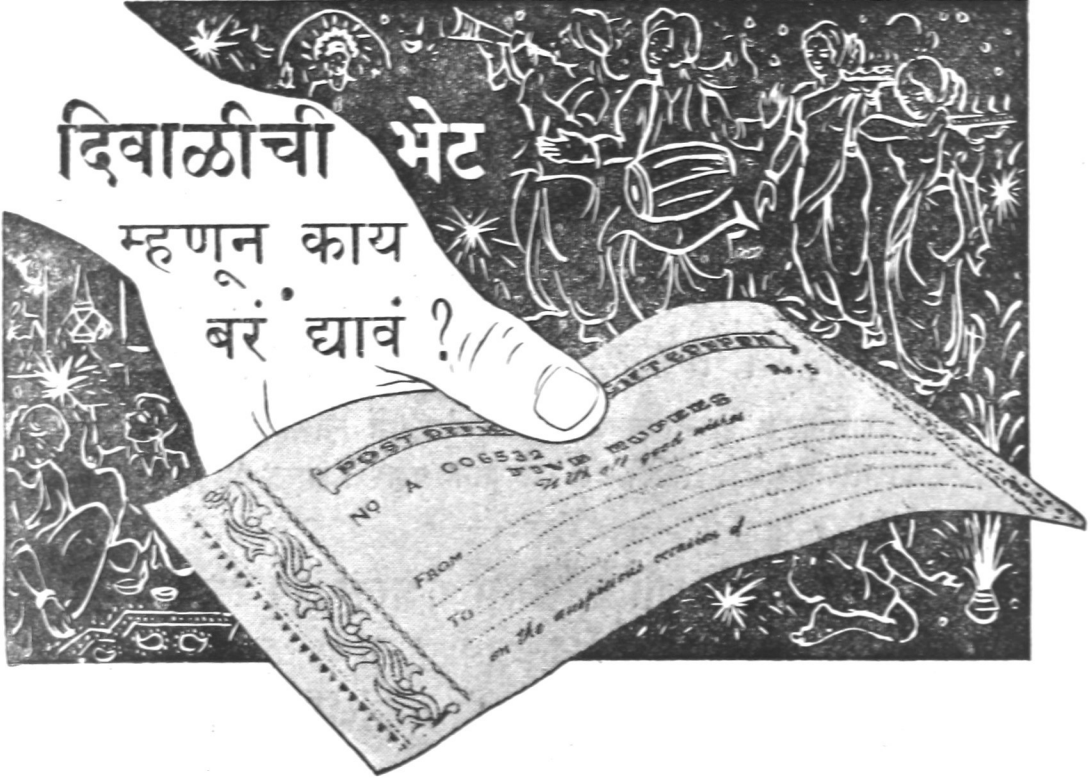 दिवाळीची भेट
म्हणून काय
बरं द्यावं ?
POST OFFICE GIFT COUPON
Rs. 5
No A 006532
FIVE RUPEES
With all good wishes
FROM
TO
on the auspicious occasion of